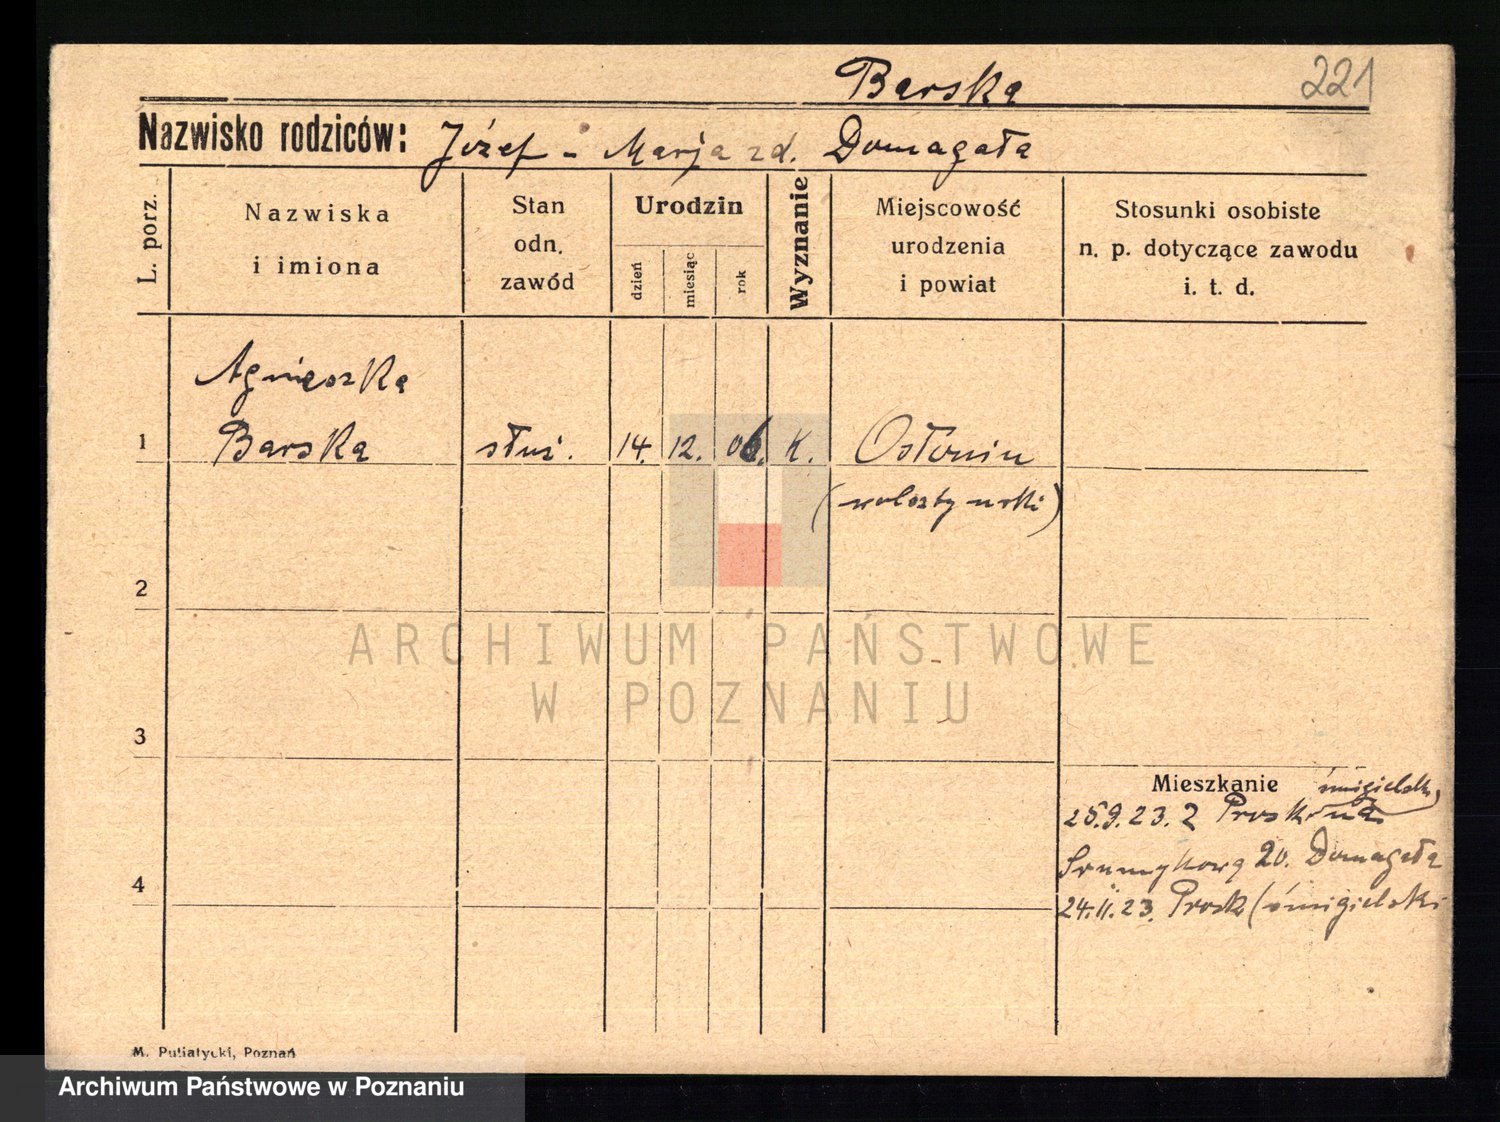 Barska
221
Nazwisko rodziców: Józef - Marja zd. Domagała
L. porz.
Nazwiska
i imiona
Stan
odn.
zawód
Urodzin
dzień
miesiąc
rok
Wyznanie
Miejscowość
urodzenia
i powiat
Stosunki osobiste
n. p. dotyczące zawodu
i. t. d.
Agnieszka
1 Barska służ. 14. 12. 06. K. Osłonin
(wolsztyński)
2
ARCHIWUM PAŃSTWOWE
W POZNANIU
3
Mieszkanie
25.9.23. z
20. Domagała
24.11.23. Prosk (śmigielski
4
M. Putiatycki, Poznań
Archiwum Państwowe w Poznaniu